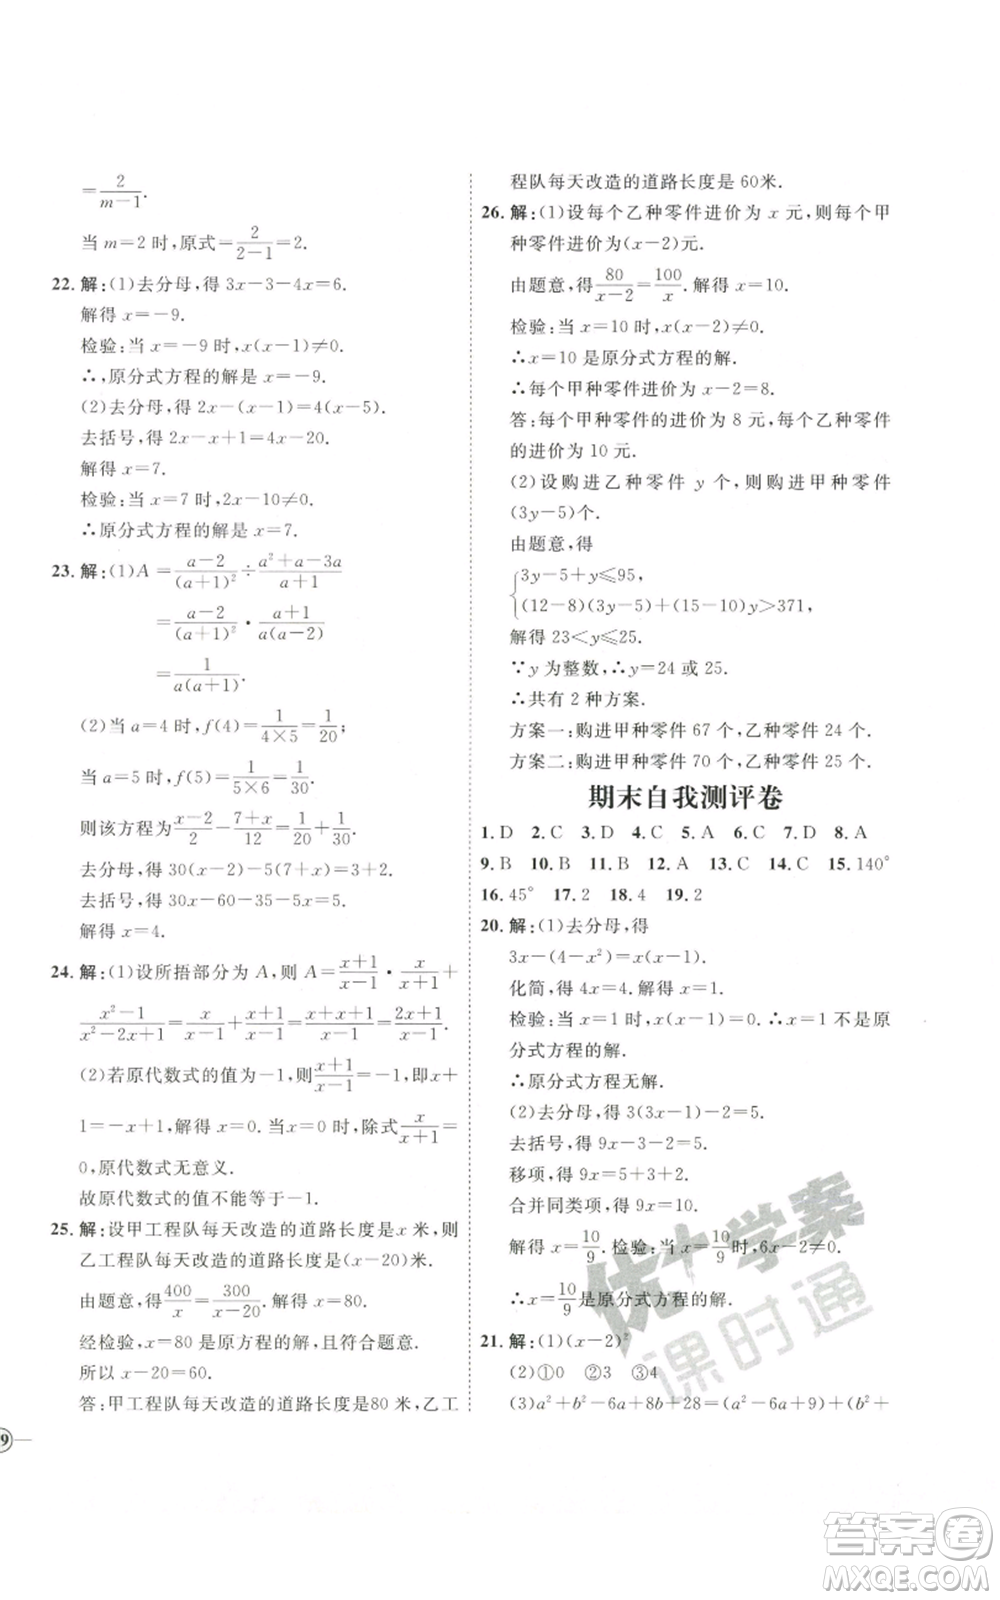 =2/(m-1).
当 m=2 时,原式=2/(2-1)=2.
22. 解:(1)去分母,得 3x-3-4x=6.
解得 x=-9.
检验:当 x=-9 时,x(x-1)≠0.
∴,原分式方程的解是 x=-9.
(2)去分母,得 2x-(x-1)=4(x-5).
去括号,得 2x-x+1=4x-20.
解得 x=7.
检验:当 x=7 时,2x-10≠0.
∴原分式方程的解是 x=7.
23. 解:(1)A=(a-2)/(a+1)²÷(a²+a-3a)/(a+1)
=(a-2)/(a+1)²·(a+1)/a(a-2)
=1/a(a+1).
(2)当 a=4 时,f(4)=1/(4×5)=1/20;
当 a=5 时,f(5)=1/(5×6)=1/30.
则该方程为(x-2)/2-(7+x)/12=1/20-1/30.
去分母,得 30(x-2)-5(7+x)=3-2.
去括号,得 30x-60-35-5x=1.
解得 x=4.
24. 解:(1)设所捂部分为 A,则 A=(x+1)/(x-1)·x/(x+1)+
(x²-1)/(x²-2x+1)=x/(x-1)+(x+1)/(x-1)=(x+x+1)/(x-1)=(2x+1)/(x-1).
(2)若原代数式的值为-1,则(x+1)/(x-1)=-1,即 x+
1=-x+1,解得 x=0.当 x=0 时,除式x/(x+1)=
0,原代数式无意义.
故原代数式的值不能等于-1.
25. 解:设甲工程队每天改造的道路长度是 x 米,则
乙工程队每天改造的道路长度是(x-20)米.
由题意,得400/x=300/(x-20).解得 x=80.
经检验,x=80 是原方程的解,且符合题意.
所以 x-20=60.
答:甲工程队每天改造的道路长度是80米,乙工
9
程队每天改造的道路长度是 60米.
26. 解:(1)设每个乙种零件进价为 x 元,则每个甲
种零件进价为(x-2)元.
由题意,得80/(x-2)=100/x.解得 x=10.
检验:当 x=10 时,x(x-2)≠0.
∴x=10 是原分式方程的解.
∴每个甲种零件进价为 x-2=8.
答:每个甲种零件的进价为 8 元,每个乙种零件
的进价为 10 元.
(2)设购进乙种零件 y 个,则购进甲种零件
(3y-5)个.
由题意,得
{3y-5+y≤95,
(12-8)(3y-5)+(15-10)y>371,
解得 23<y≤25.
∵y 为整数,∴y=24 或 25.
∴共有 2 种方案.
方案一:购进甲种零件 67 个,乙种零件 24 个.
方案二:购进甲种零件 70 个,乙种零件 25 个.
期末自我测评卷
1. D 2. C 3. D 4. C 5. A 6. C 7. D 8. A
9. B 10. B 11. B 12. A 13. C 14. C 15. 140°
16. 45° 17. 2 18. 4 19. 2
20. 解:(1)去分母,得
3x-(4-x²)=x(x-1).
化简,得 4x=4.解得 x=1.
检验:当 x=1 时,x(x-1)=0.∴x=1 不是原
分式方程的解.
∴原分式方程无解.
(2)去分母,得 3(3x-1)-2=5.
去括号,得 9x-3-2=5.
移项,得 9x=5+3+2.
合并同类项,得 9x=10.
解得 x=10/9.检验:当 x=10/9时,6x-2≠0.
∴x=10/9是原分式方程的解.
21. 解:(1)(x-2)²
(2)①0 ②3 ③4
(3)a²+b²-6a+8b+28=(a²-6a+9)+(b²+
优+学案
课时通
答案卷
MXQE.COM